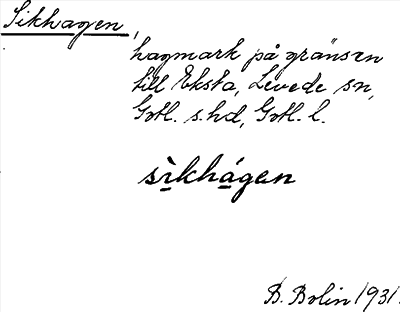 Sikhagen,
hagmark på gränsen
till Eksta, Levede sn,
Gotl. s. hd, Gotl. l.
sìkhágen
B. Bolin 1931.